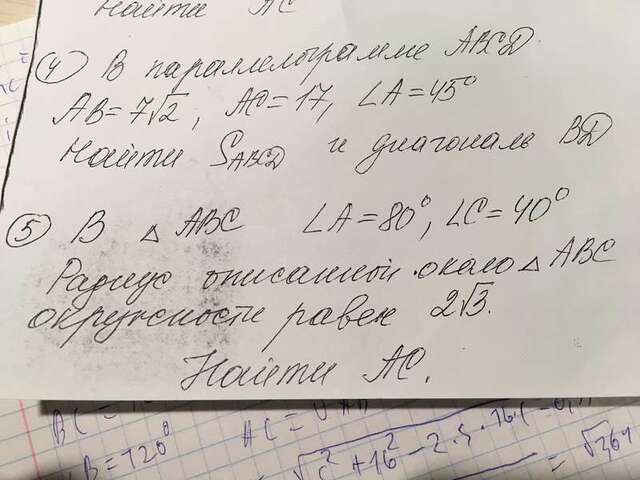 Найти AC
④ В параллелограмме ABCD
AB=7√2, AC=17, ∠A=45°
Найти S_ABCD и диагональ BD
⑤ В △ ABC ∠A=80°, ∠C=40°
Радиус описанной около △ ABC
окружности равен 2√3.
Найти AC.
BC =
AC =
B=120°